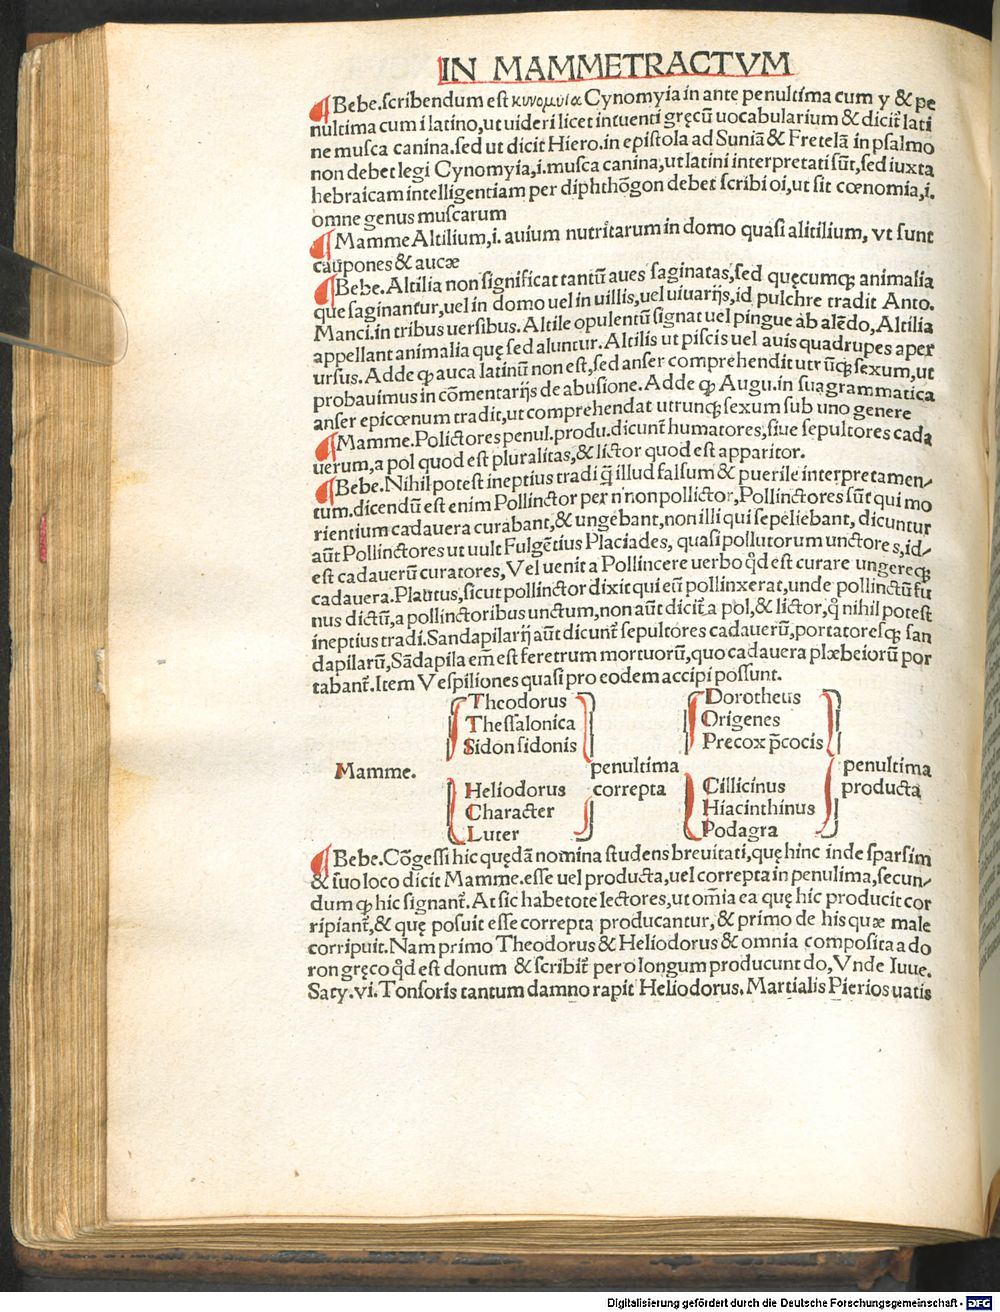 IN MAMMETRACTVM
¶Bebe.scribendum est κυνομυια Cynomyia in ante penultima cum y & pe
nultima cum i latino,ut uideri licet intuenti gręcū uocabularium & dicit̃ lati
ne musca canina.sed ut dicit Hiero.in epistola ad Suniā & Fretelā in psalmo
non debet legi Cynomyia,i.musca canina,ut latini interpretati sūt,sed iuxta
hebraicam intelligentiam per diphthōgon debet scribi oi,ut sit cœnomia,i.
omne genus muscarum
¶Mamme Altilium,i. auium nutritarum in domo quasi alitilium, vt sunt
caupones & aucæ
¶Bebe.Altilia non significat tantū aues saginatas,sed quęcumqꝫ animalia
que saginantur,uel in domo uel in uillis,uel uiuarijs,id pulchre tradit Anto.
Manci.in tribus uersibus. Altile opulentū signat uel pingue ab alēdo,Altilia
appellant animalia quę sed aluntur.Altilis ut piscis uel auis quadrupes aper
ursus. Adde ꝙ auca latinū non est,sed anser comprehendit utrūqꝫ sexum,ut
probauimus in cōmentarijs de abusione. Adde ꝙ Augu.in sua grammatica
anser epicœnum tradit,ut comprehendat utrunqꝫ sexum sub uno genere
¶Mamme.Polictores penul.produ.dicunt̃ humatores,siue sepultores cada
uerum,a pol quod est pluralitas,& lictor quod est apparitor.
¶Bebe.Nihil potest ineptius tradi q̃ illud falsum & puerile interpretamen/
tum.dicendū est enim Pollinctor per n non pollictor,Pollinctores sūt qui mo
rientium cadauera curabant,& ungebant,non illi qui sepeliebant, dicuntur
aūt Pollinctores ut uult Fulgētius Placiades, quasi pollutorum unctores,id/
est cadauerū curatores,Vel uenit a Pollincere uerbo qd̓ est curare ungereqꝫ
cadauera.Plautus,sicut pollinctor dixit qui eū pollinxerat,unde pollinctū fu
nus dictū,a pollinctoribus unctum,non aūt dicit̃ a pol,& lictor,q̊ nihil potest
ineptius tradi.Sandapilarij aūt dicunt̃ sepultores cadauerū,portatoresqꝫ san
dapilarū,Sādapila em̄ est feretrum mortuorū,quo cadauera plæbeiorū por
tabant̃.Item Vespiliones quasi pro eodem accipi possunt.
Theodorus Dorotheus
Thessalonica Origenes
Sidon sidonis Precox p̄cocis
Mamme. penultima penultima
Heliodorus correpta Cillicinus producta
Character Hiacinthinus
Luter Podagra
¶Bebe.Cōgessi hic quędā nomina studens breuitati,quę hinc inde sparsim
& suo loco dicit Mamme.esse uel producta,uel correpta in penulima,secun/
dum ꝙ hic signant̃. At sic habetote lectores,ut om̄ia ea quę hic producit cor
ripiant̃,& quę posuit esse correpta producantur,& primo de his quæ male
corripuit.Nam primo Theodorus & Heliodorus & omnia composita a do
ron gręco qd̓ est donum & scribit̃ per o longum producunt do,Vnde Iuue.
Saty.vi.Tonsoris tantum damno rapit Heliodorus. Martialis Pierios uatis
Digitalisierung gefördert durch die Deutsche Forschungsgemeinschaft - DFG